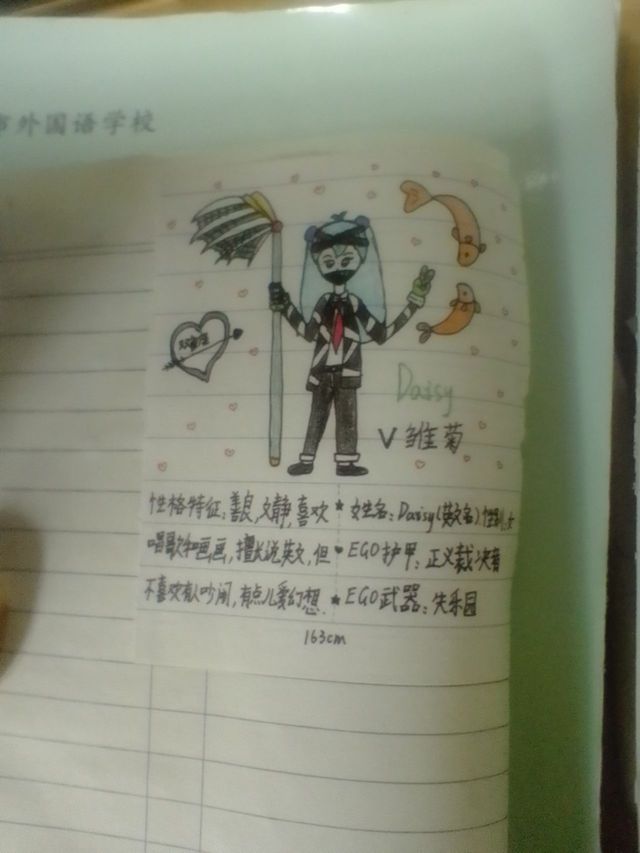 市外国语学校
双鱼座
Daisy
V 雏菊
性格特征：善良，文静，喜欢
唱歌和画画，擅长说英文，但
不喜欢有人吵闹，有点儿爱幻想.
★ 女生名：Daisy(英文名)性别：女
• EGO护甲：正义裁决者
★ EGO武器：失乐园
163cm